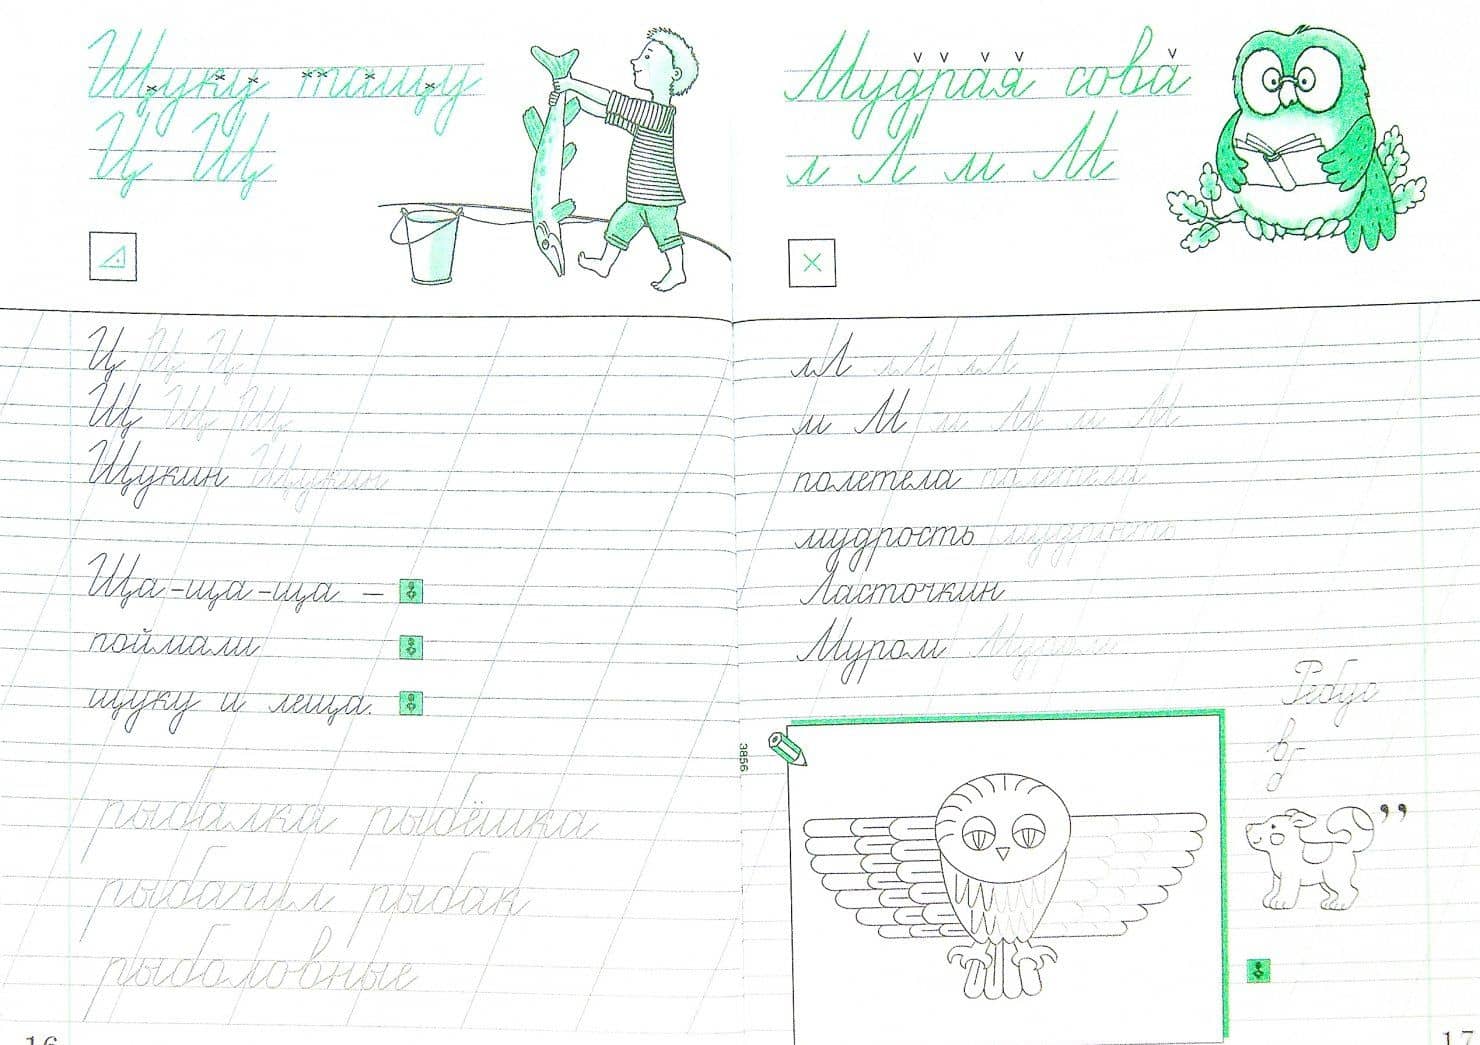 Щуку тащу
Ц Щ
Ц Ц Ц
Щ Щ Щ
Щукин Щукин
Ща-ща-ща –
поймали
щуку и леща.
рыбалка рыбёшка
рыбачил рыбак
рыболовные
16
Мудрая сова
л Л м М
лЛ лЛ лЛ
м М м М м М
полетела полетела
мудрость мудрость
Ласточкин
Муром Муром
Ребус
в д
,,
3856
17